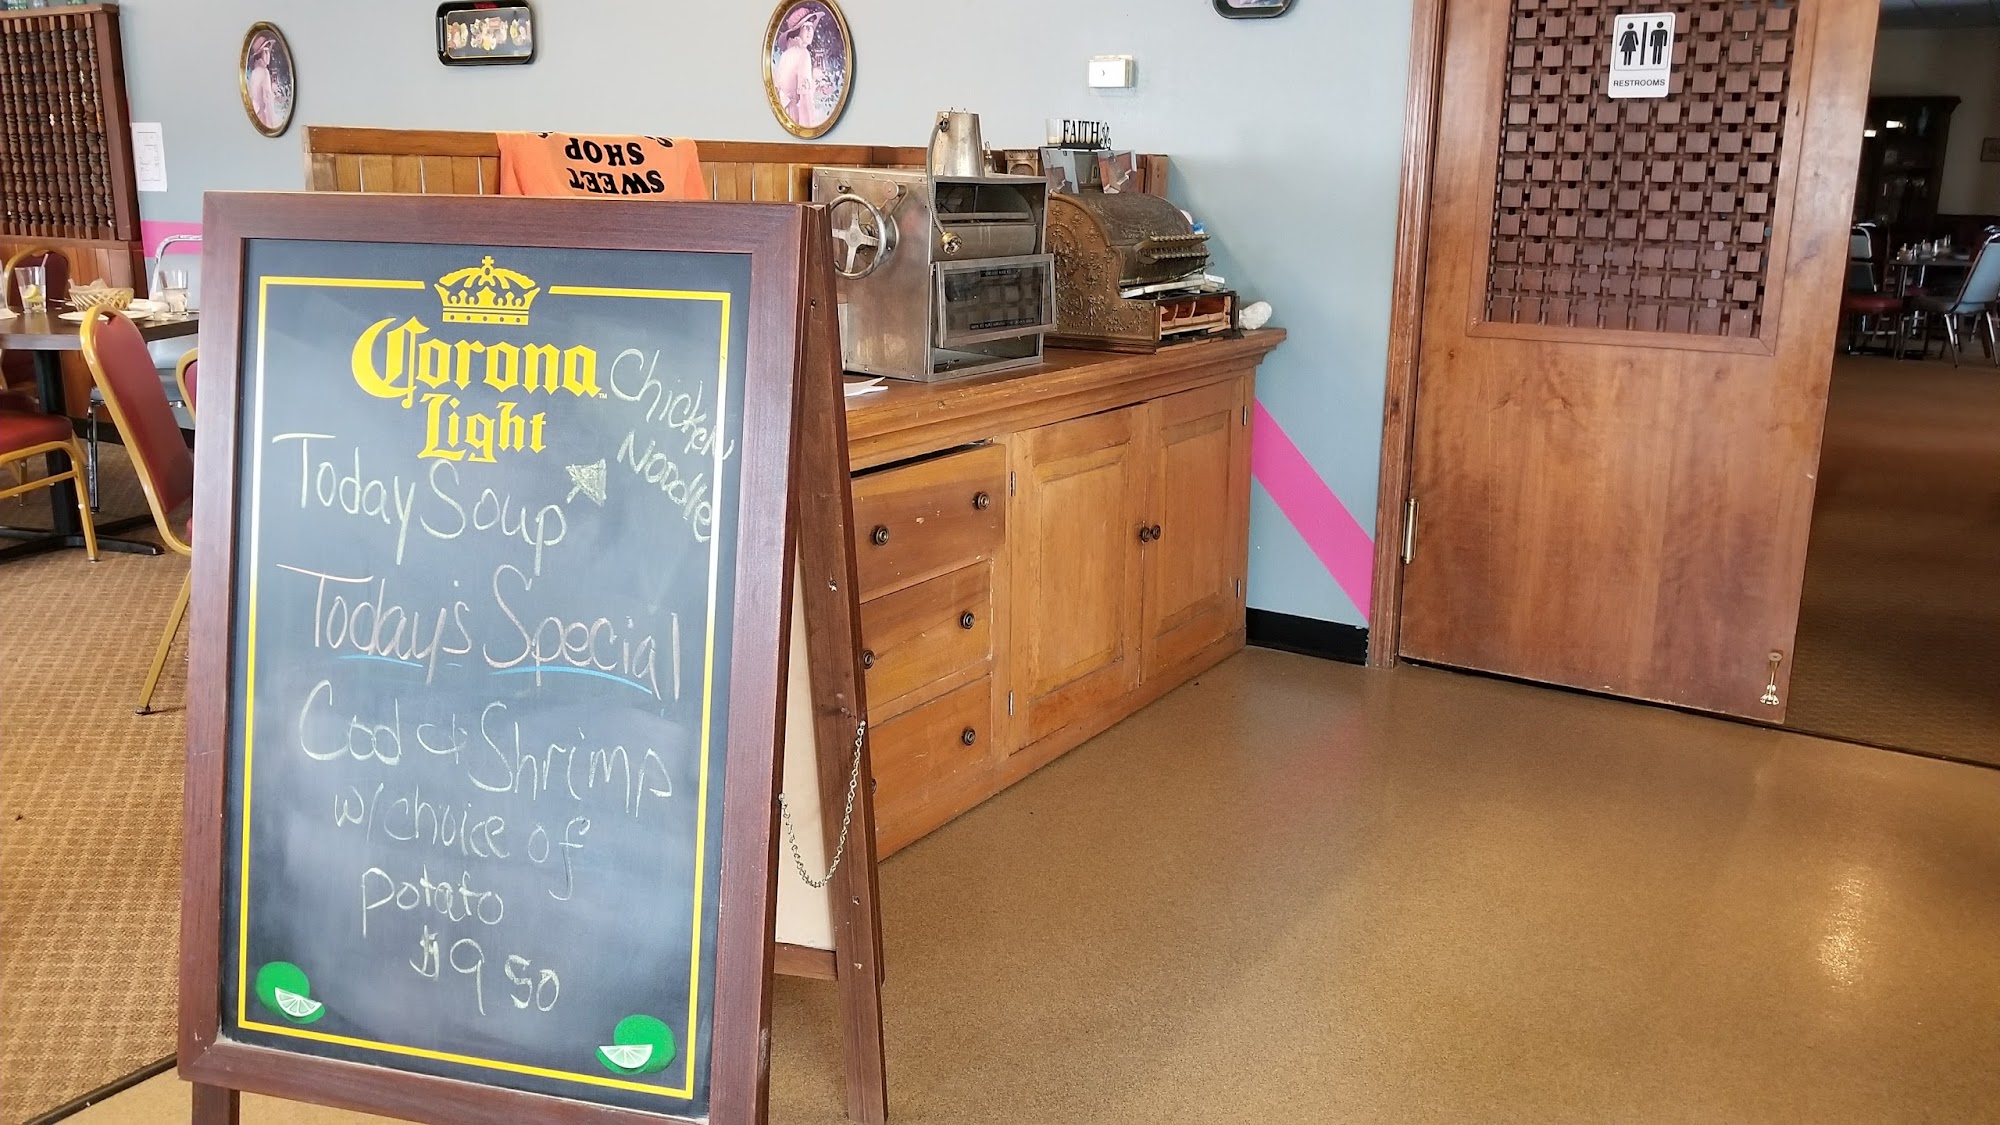 RESTROOMS
FAITH
SWEET
SHOP
Corona
Light
Chicken
Noodle
Today Soup
Today's Special
Cod & Shrimp
w/choice of
potato
$9 50